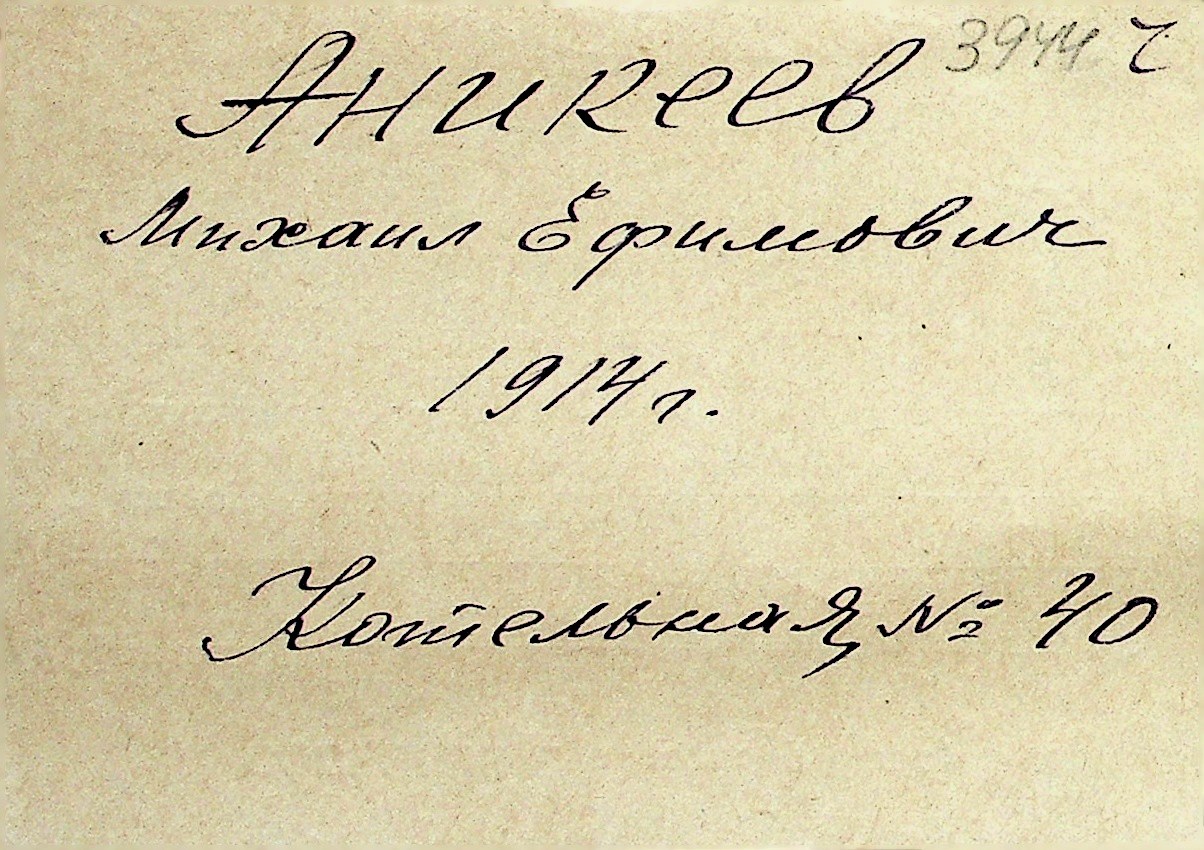 3944
Аникеев
Михаил Ефимович
1914 г.
Котельная № 40